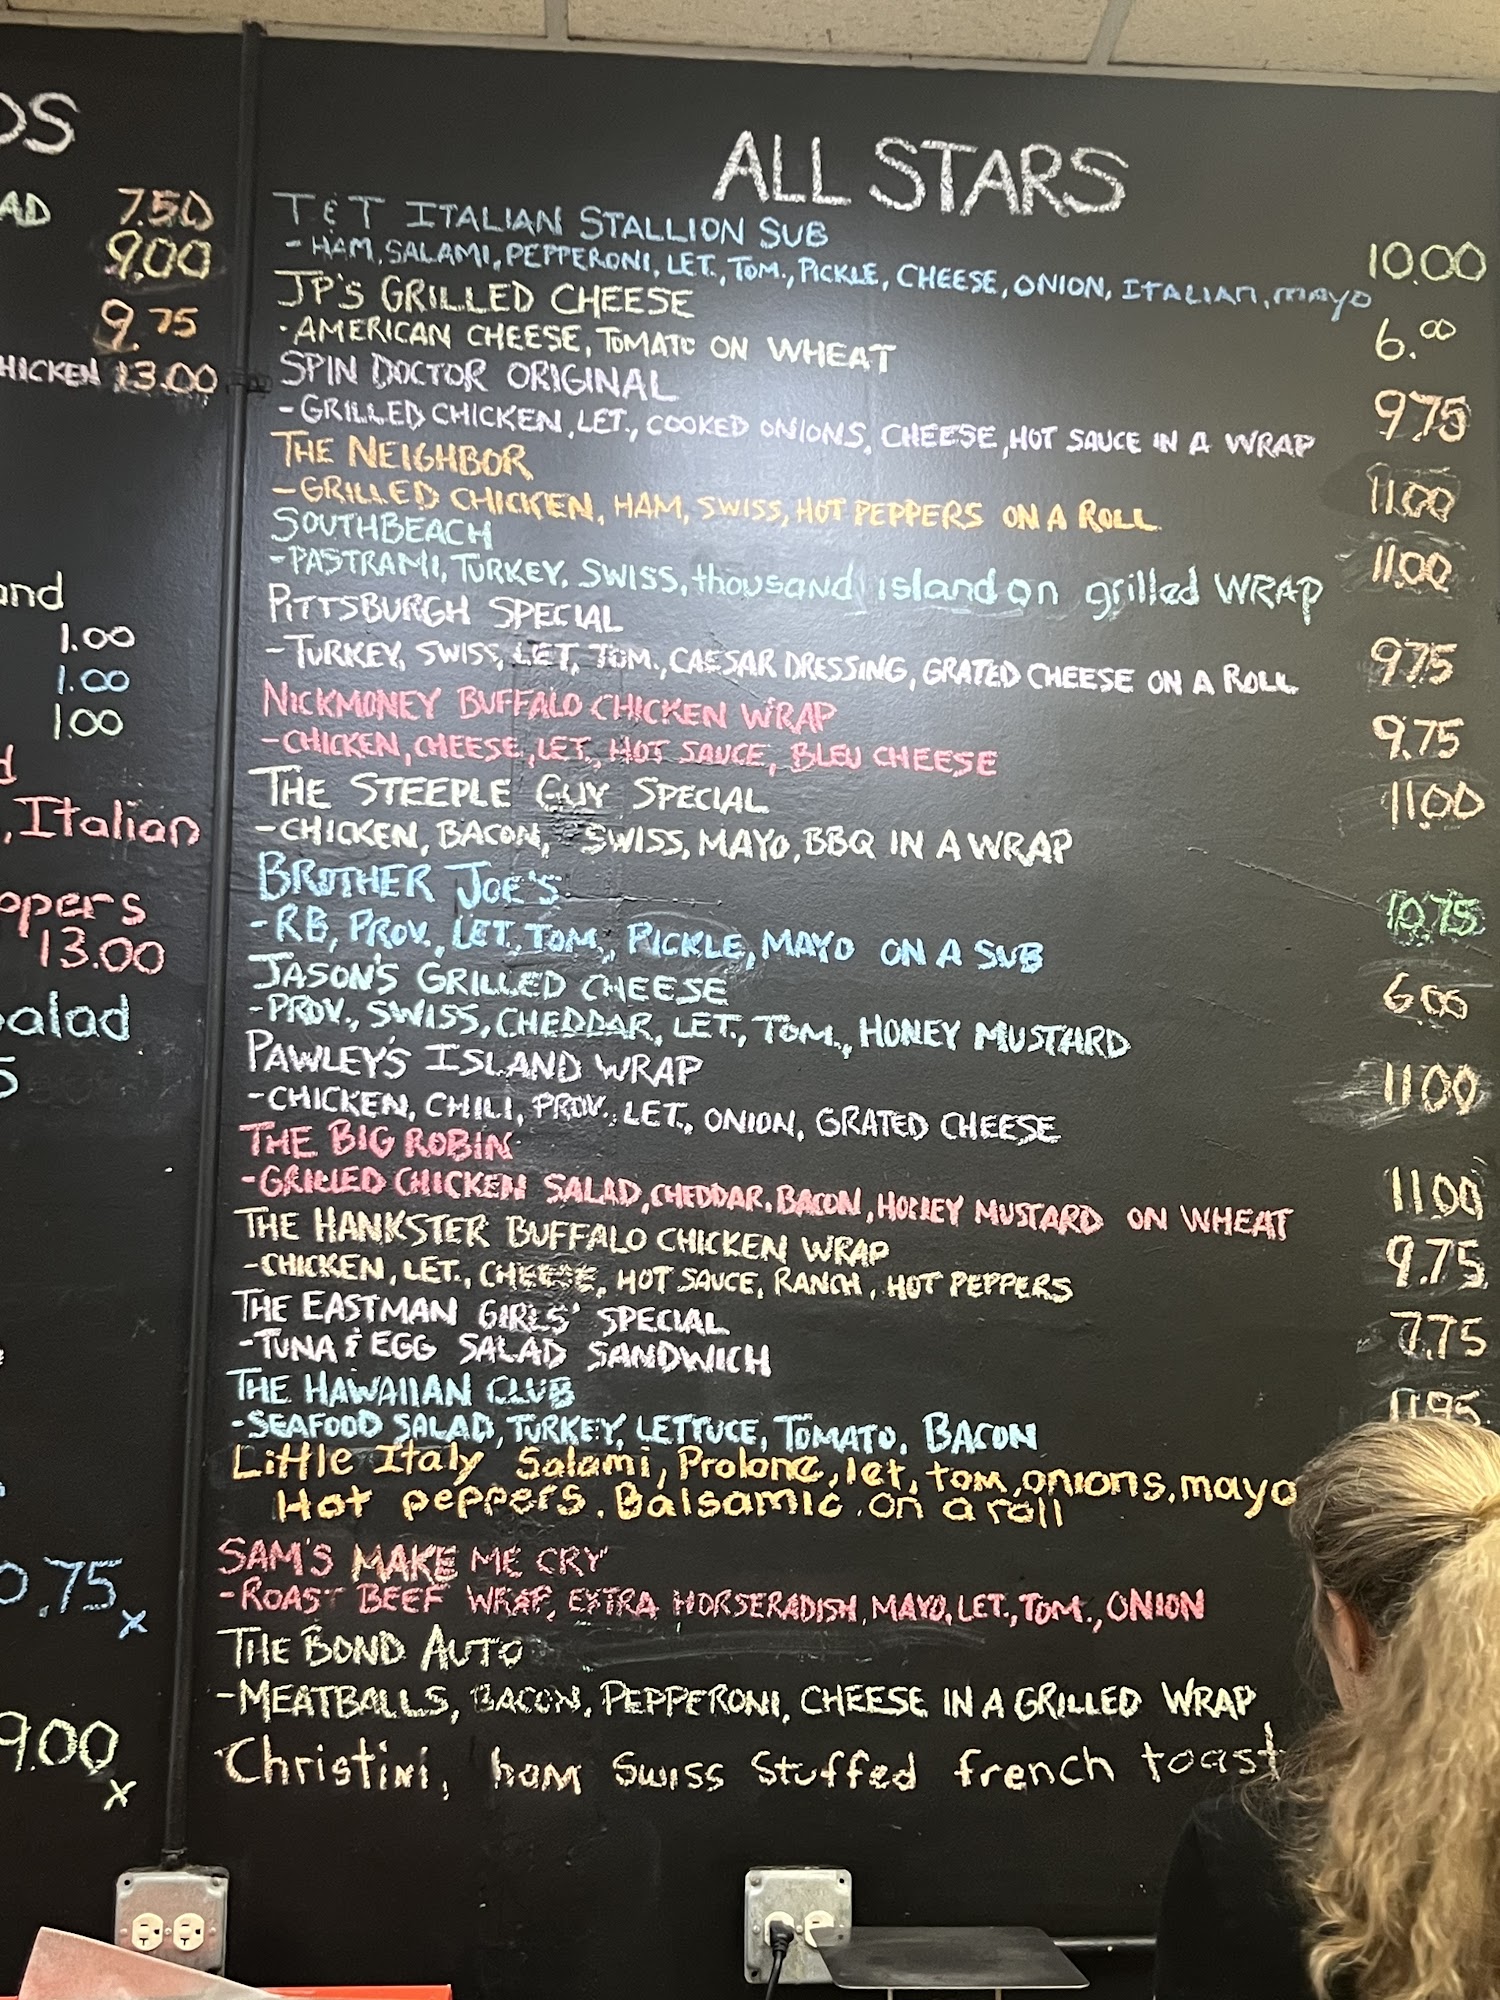 DS
AD 7.50
9.00
9.75
HICKEN 13.00
and
1.00
1.00
1.00
d
, Italian
ppers
13.00
alad
5
0.75 x
9.00 x
ALL STARS
T & T ITALIAN STALLION SUB
- HAM, SALAMI, PEPPERONI, LET., TOM., PICKLE, CHEESE, ONION, ITALIAN, mayo 10.00
JP'S GRILLED CHEESE
- AMERICAN CHEESE, TOMATO ON WHEAT 6.00
SPIN DOCTOR ORIGINAL
- GRILLED CHICKEN, LET., COOKED ONIONS, CHEESE, HOT SAUCE IN A WRAP 9.75
THE NEIGHBOR
- GRILLED CHICKEN, HAM, SWISS, HOT PEPPERS ON A ROLL 11.00
SOUTHBEACH
- PASTRAMI, TURKEY, SWISS, thousand island on grilled WRAP 11.00
PITTSBURGH SPECIAL
- TURKEY, SWISS, LET, TOM., CAESAR DRESSING, GRATED CHEESE ON A ROLL 9.75
NICKMONEY BUFFALO CHICKEN WRAP
- CHICKEN, CHEESE, LET., HOT SAUCE, BLEU CHEESE 9.75
THE STEEPLE GUY SPECIAL
- CHICKEN, BACON, SWISS, MAYO, BBQ IN A WRAP 11.00
BROTHER JOE'S
- RB, PROV., LET., TOM., PICKLE, MAYO ON A SUB 10.75
JASON'S GRILLED CHEESE
- PROV., SWISS, CHEDDAR, LET., TOM., HONEY MUSTARD 6.00
PAWLEY'S ISLAND WRAP
- CHICKEN, CHILI, PROV., LET., ONION, GRATED CHEESE 11.00
THE BIG ROBIN
- GRILLED CHICKEN SALAD, CHEDDAR, BACON, HONEY MUSTARD ON WHEAT 11.00
THE HANKSTER BUFFALO CHICKEN WRAP
- CHICKEN, LET., CHEESE, HOT SAUCE, RANCH, HOT PEPPERS 9.75
THE EASTMAN GIRLS' SPECIAL
- TUNA & EGG SALAD SANDWICH 7.75
THE HAWAIIAN CLUB
- SEAFOOD SALAD, TURKEY, LETTUCE, TOMATO, BACON 11.95
Little Italy Salami, Prolone, let, tom, onions, mayo
Hot peppers. Balsamic on a roll
SAM'S MAKE ME CRY
- ROAST BEEF WRAP, EXTRA HORSERADISH, MAYO, LET., TOM., ONION
THE BOND AUTO
- MEATBALLS, BACON, PEPPERONI, CHEESE IN A GRILLED WRAP
Christini, ham Swiss Stuffed french toast